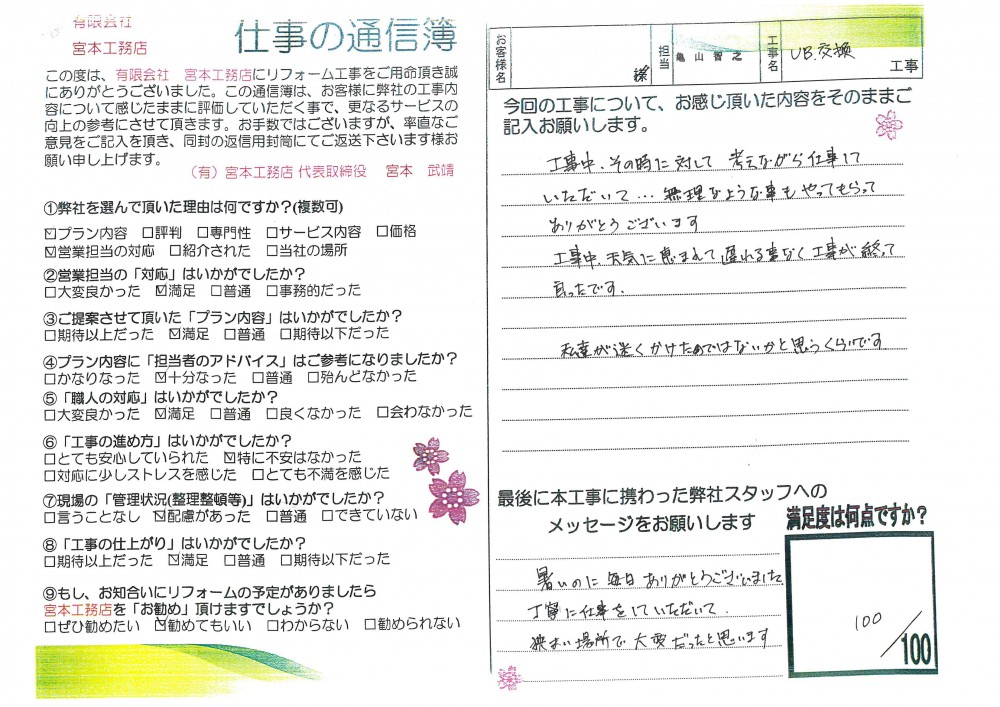 有限会社
宮本工務店
仕事の通信簿
この度は、有限会社　宮本工務店にリフォーム工事をご用命頂き誠
にありがとうございました。この通信簿は、お客様に弊社の工事内
容について感じたままに評価していただく事で、更なるサービスの
向上の参考にさせて頂きます。お手数ではございますが、率直なご
意見をご記入を頂き、同封の返信用封筒にてご返送下さいます様お
願い申し上げます。
（有）宮本工務店 代表取締役　宮本　武靖
①弊社を選んで頂いた理由は何ですか？(複数可)
☑プラン内容 □評判 □専門性 □サービス内容 □価格
☑営業担当の対応 □紹介された □当社の場所
②営業担当の「対応」はいかがでしたか？
□大変良かった ☑満足 □普通 □事務的だった
③ご提案させて頂いた「プラン内容」はいかがでしたか？
□期待以上だった ☑満足 □普通 □期待以下だった
④プラン内容に「担当者のアドバイス」はご参考になりましたか？
□かなりなった ☑十分なった □普通 □殆んどなかった
⑤「職人の対応」はいかがでしたか？
□大変良かった ☑満足 □普通 □良くなかった □会わなかった
⑥「工事の進め方」はいかがでしたか？
□とても安心していられた ☑特に不安はなかった
□対応に少しストレスを感じた □とても不満を感じた
⑦現場の「管理状況(整理整頓等)」はいかがでしたか？
□言うことなし ☑配慮があった □普通 □できていない
⑧「工事の仕上がり」はいかがでしたか？
□期待以上だった ☑満足 □普通 □期待以下だった
⑨もし、お知合いにリフォームの予定がありましたら
宮本工務店を「お勧め」頂けますでしょうか？
□ぜひ勧めたい ☑勧めてもいい □わからない □勧められない
お客様名 様 担当 亀山智之 工事名 UB.交換 工事
今回の工事について、お感じ頂いた内容をそのままご
記入お願いします。
工事中、その時に対して 考えながら仕事して
いただいて… 無理なような事も やってもらって
ありがとうございます
工事中、天気に恵まれて遅れる事なく工事が終って
良ったです.
私達が迷くかけたのではないかと思うくらいです
最後に本工事に携わった弊社スタッフへの
メッセージをお願いします
暑いのに 毎日 ありがとうございました
丁寧に仕事をしていただいて.
狭まい場所で 大変だったと思います
満足度は何点ですか？
100
/100